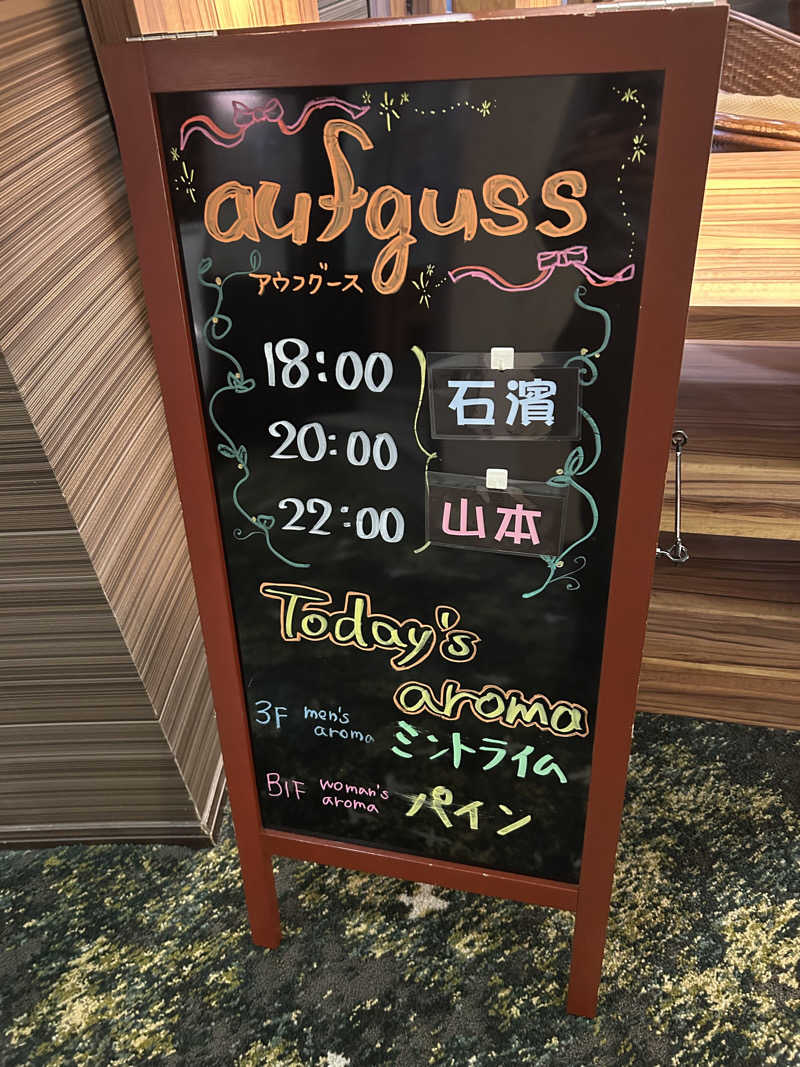 aufguss
アウフグース
18:00
石濱
20:00
22:00
山本
Today's
aroma
3F men's aroma ミントライム
B1F woman's aroma パイン